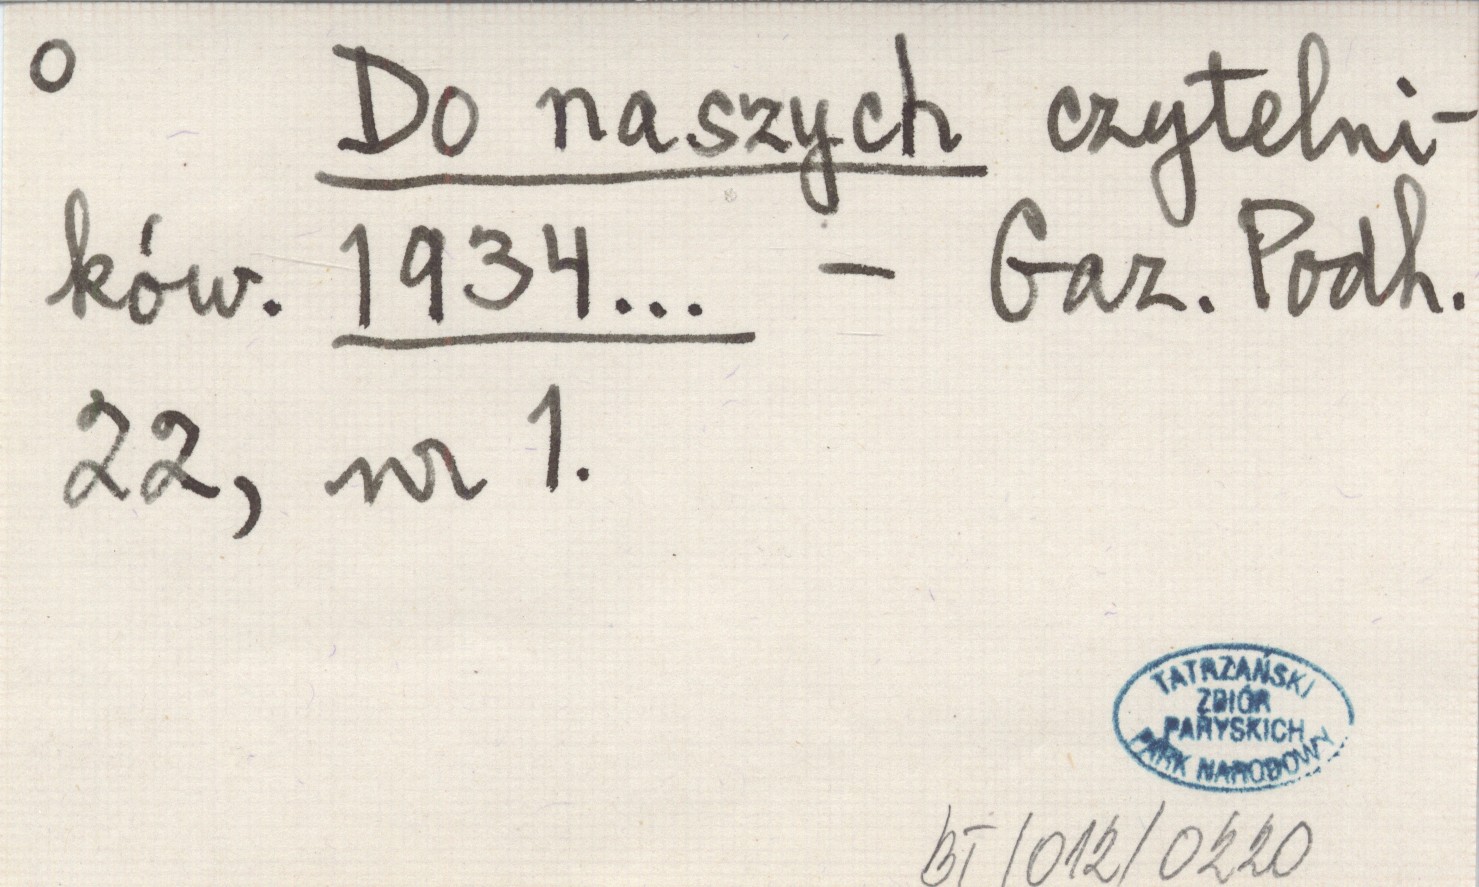 o Do naszych czytelni-
ków. 1934... - Gaz. Podh.
22, nr 1.
TATRZAŃSKI
ZBIÓR
PARYSKICH
PARK NARODOWY
bT/012/0220